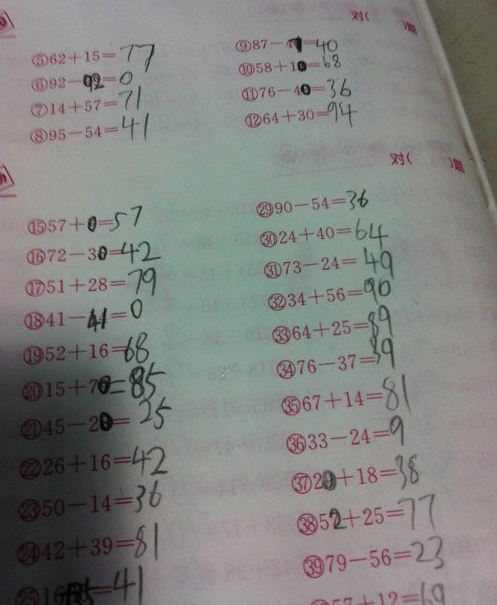 对( )题
⑤62+15=77
⑥92-92=0
⑦14+57=71
⑧95-54=41
⑨87-47=40
⑩58+10=68
⑪76-40=36
⑫64+30=94
对( )题
⑮57+0=57
⑯72-30=42
⑰51+28=79
⑱41-41=0
⑲52+16=68
⑳15+70=85
㉑45-20=25
㉒26+16=42
㉓50-14=36
㉔42+39=81
㉕16
=41
㉙90-54=36
㉚24+40=64
㉛73-24=49
㉜34+56=90
㉝64+25=89
㉞76-37=39
㉟67+14=81
㊱33-24=9
㊲20+18=38
㊳52+25=77
㊴79-56=23
57+12=69